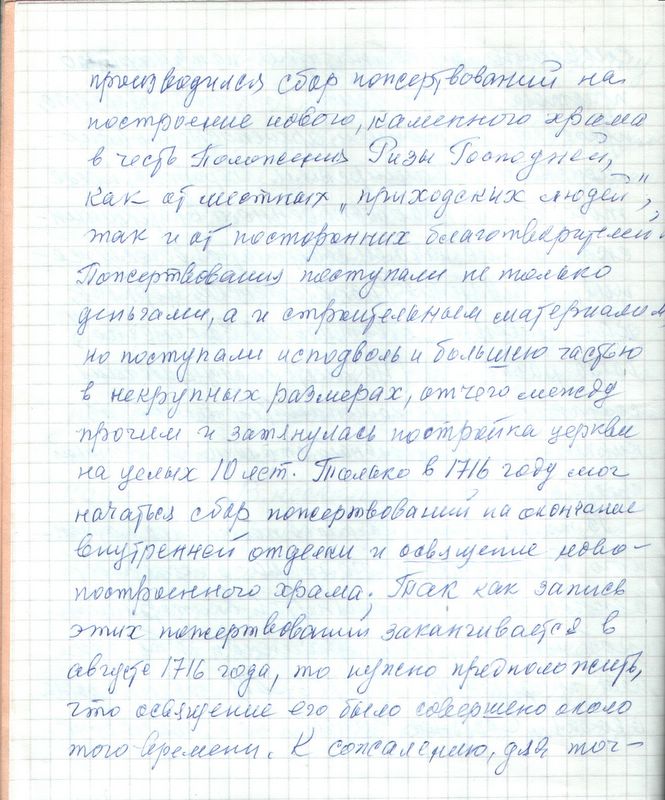 производился сбор пожертвований на
построение нового, каменного храма
в честь Положения Ризы Господней,
как от местных „приходских людей",
так и от посторонних благотворителей.
Пожертвования поступали не только
деньгами, а и строительным материалом
но поступали исподволь и большею частью
в некрупных размерах, отчего между
прочим и затянулась постройка церкви
на целых 10 лет. Только в 1716 году мог
начаться сбор пожертвований на окончание
внутренней отделки и освящение ново-
построенного храма. Так как запись
этих пожертвований заканчивается в
августе 1716 года, то нужно предположить,
что освящение его было совершено около
того времени. К сожалению, для точ-